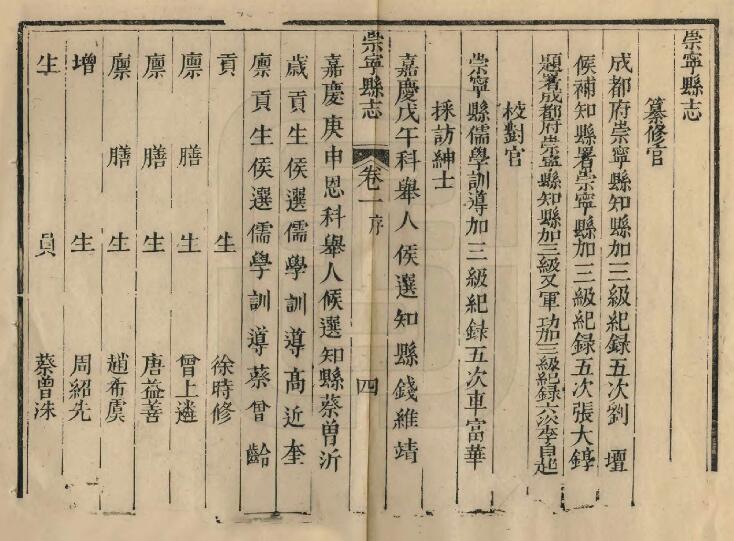 崇寧縣志
纂修官
成都府崇寧縣知縣加三級紀録五次劉壇
候補知縣署崇寧縣加三級紀録五次張大錞
題署成都府崇寧縣知縣加三級又軍功加三級紀録六次李自超
校對官
崇寧縣儒學訓導加三級紀録五次車富華
採訪紳士
嘉慶戊午科舉人候選知縣錢維靖
崇寧縣志 卷一 序 四
嘉慶庚申恩科舉人候選知縣蔡曽沂
歲貢生侯選儒學訓導髙近奎
廪貢生侯選儒學訓導蔡曾齡
貢生徐時修
廪膳生曾上遴
廪膳生唐益善
廪膳生趙希虞
增生周紹先
生員蔡曾洙